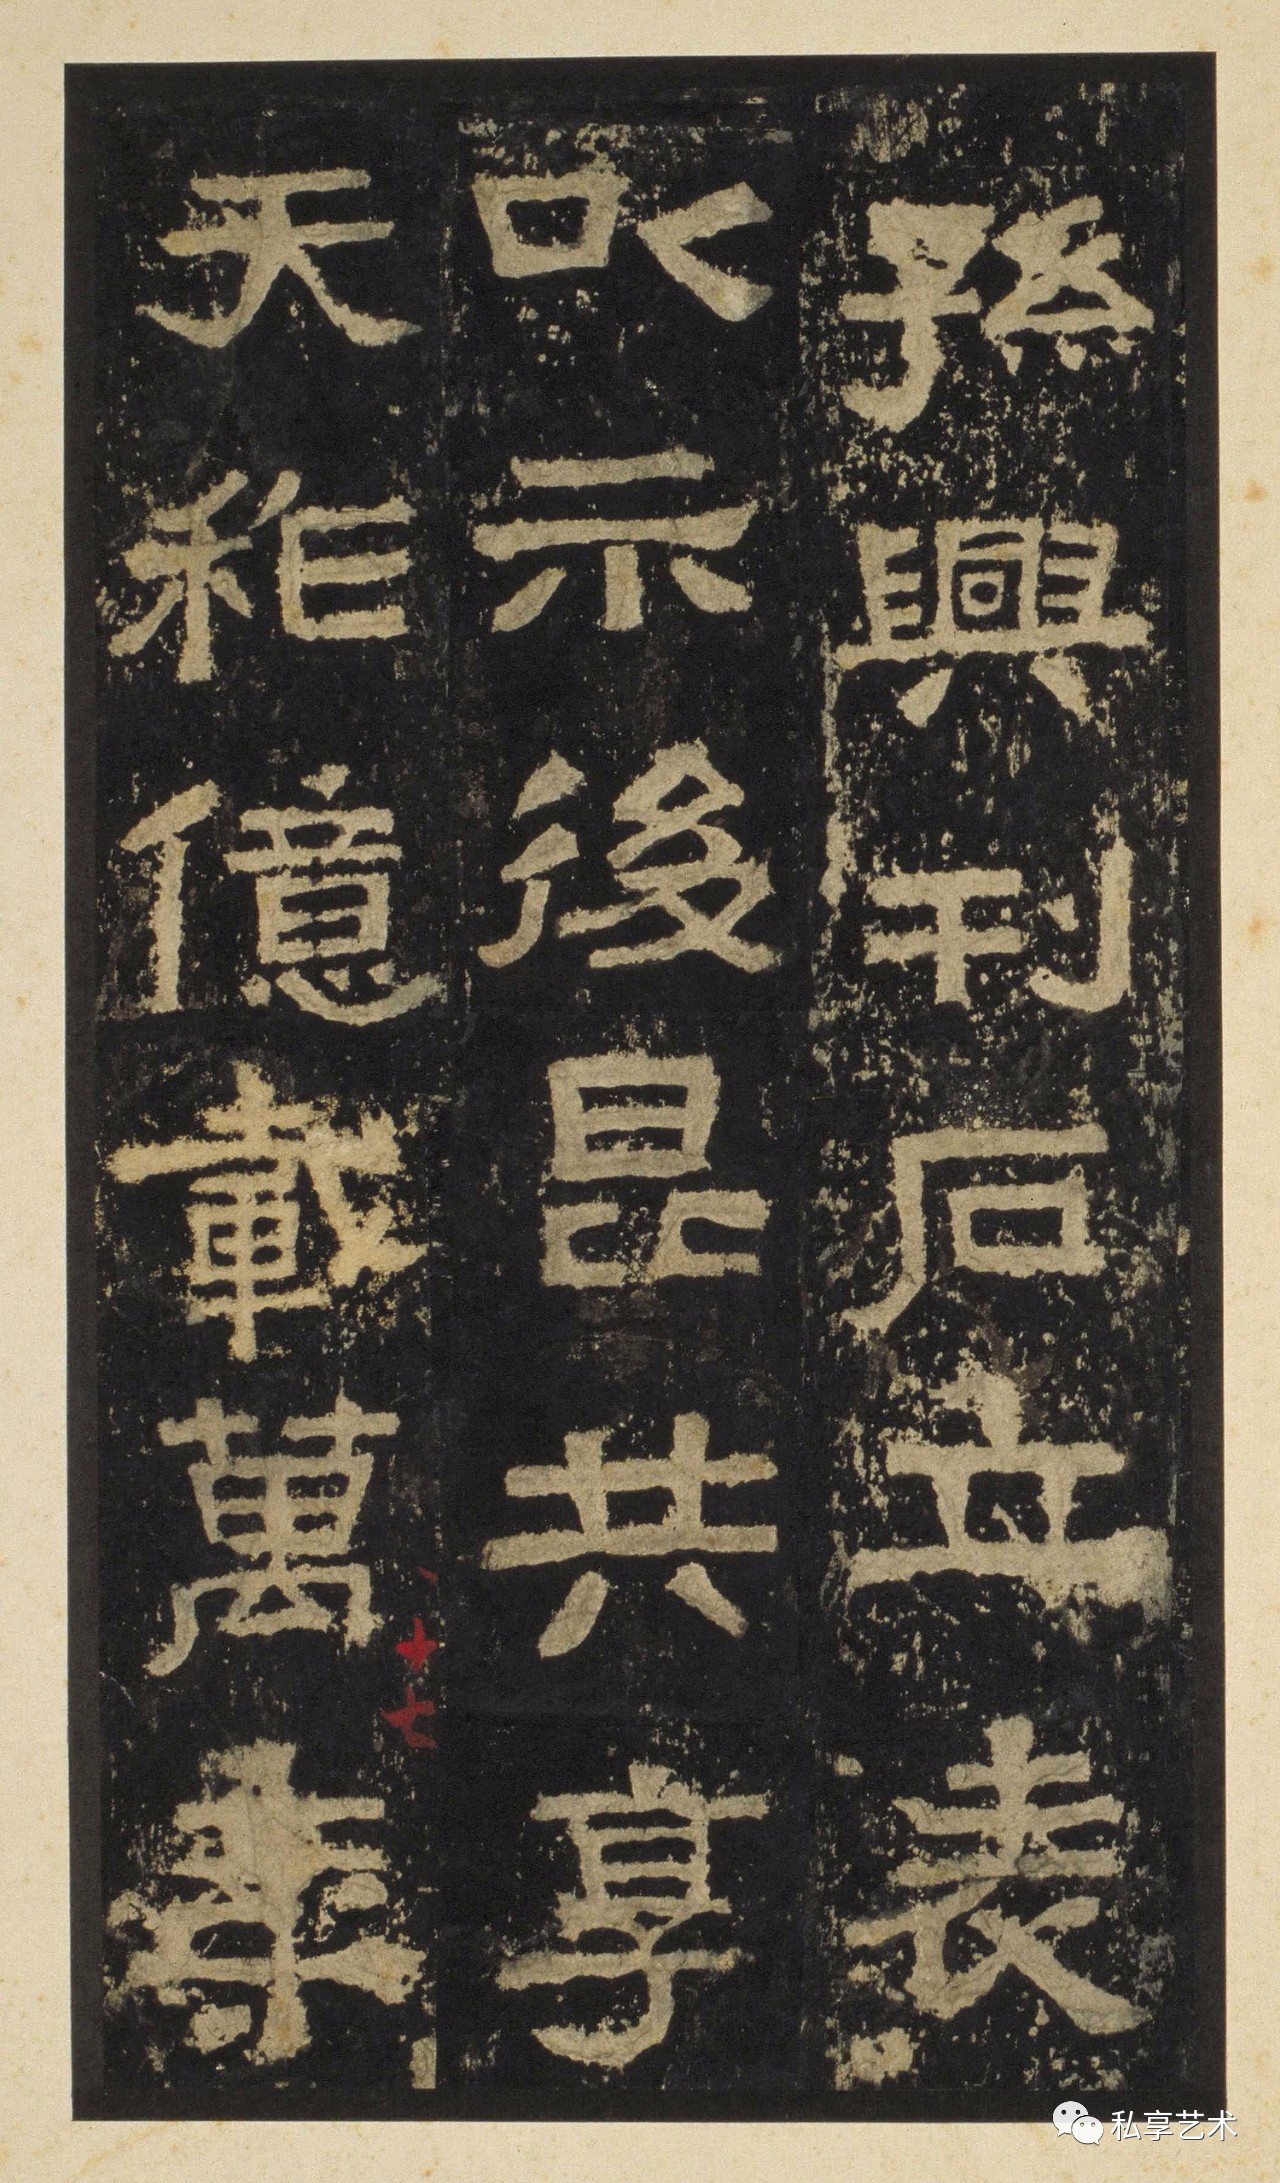 孫興刊石立表
以示後昆共享
天祚億載萬年
十七
私享艺术